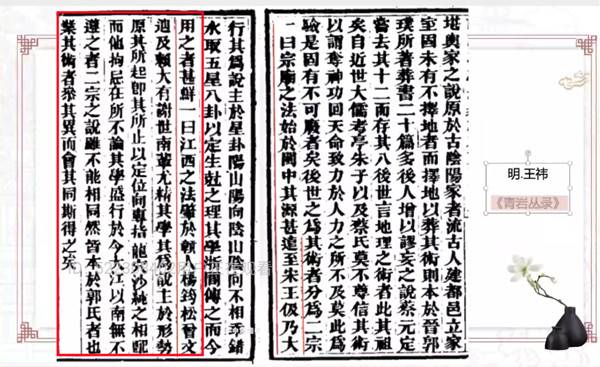 堪輿家之說原於古陰陽家者流古人建都邑立家
室固未有不擇地者而擇地以葬其術則本於晉郭
璞所著葬書二十篇多後人增以謬妄之說蔡元定
嘗去其十二而存其八後世言地理之術者此其祖
矣自近世大儒考亭朱子以及蔡氏莫不尊信其術
以謂奪神功回天命致力於人力之所不及莫此為
驗是固有不可廢者矣後世之為其術者分為二宗
一曰宗廟之法始於閩中其源甚遠至宋王伋乃大
行其為說主於星卦陽山陽向陰山陰向不相乖錯
純取五星八卦以定生剋之理其學浙閩傳之而今
用之者甚鮮一曰江西之法肇於贛人楊筠松曾文
迪及賴大有謝世南輩尤精其學其為說主於形勢
原其所起即其所止以定位向專指龍穴沙水之相配
而他拘忌在所不論其學盛行於今大江以南無不
遵之者二宗之說雖不能相同然皆本於郭氏者也
業其術者參其異而會其同斯得之矣
明.王祎
《青岩丛录》